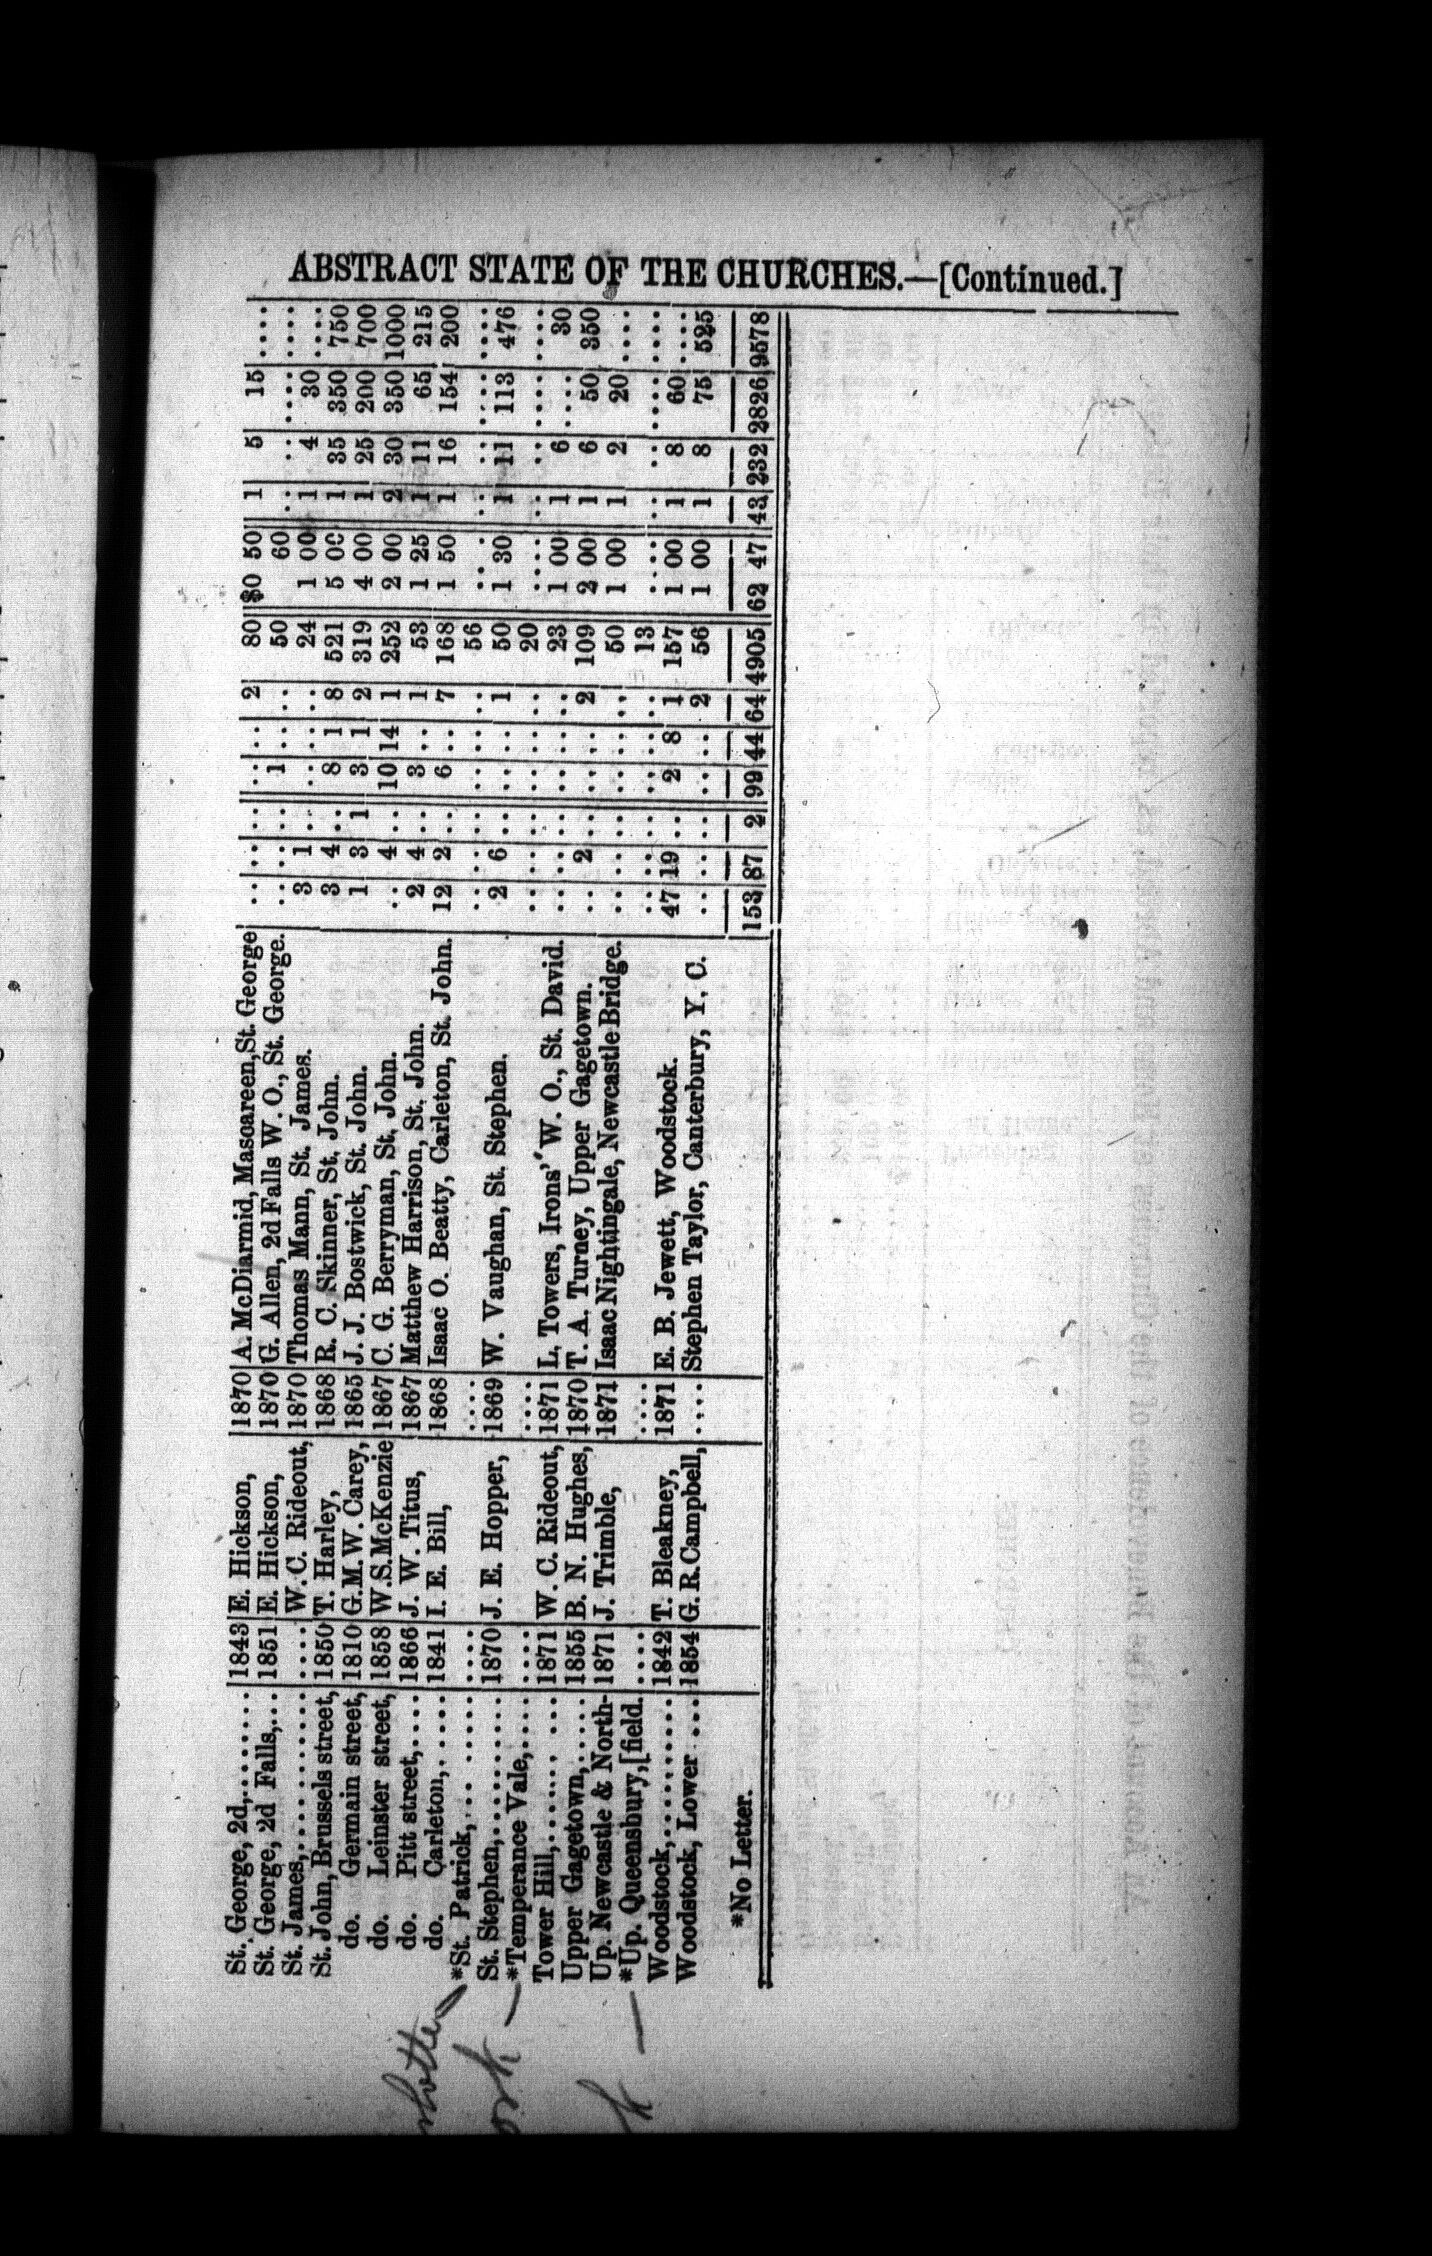 ABSTRACT STATE OF THE CHURCHES.—[Continued.]
St. George, 2d,........ 1843 E. Hickson, 1870 A. McDiarmid, Mascareen, St. George .. .. .. .. .. 2 80 $0 50 1 5 15 ....
St. George, 2d Falls,... 1851 E. Hickson, 1870 G. Allen, 2d Falls W. O., St. George. .. .. .. 1 .. .. 50 60 .. .. .... ....
St. James,............ .... W. C. Rideout, 1870 Thomas Mann, St. James. 3 1 .. .. .. .. 24 1 00 1 4 30 ....
St. John, Brussels street, 1850 T. Harley, 1868 R. C. Skinner, St. John. 3 4 .. 8 1 8 521 5 00 1 35 350 750
do. Germain street, 1810 G.M.W. Carey, 1865 J. J. Bostwick, St. John. 1 3 1 3 1 2 319 4 00 1 25 200 700
do. Leinster street, 1858 W.S.McKenzie 1867 C. G. Berryman, St. John. .. 4 .. 10 14 1 252 2 00 2 30 350 1000
do. Pitt street,.... 1866 J. W. Titus, 1867 Matthew Harrison, St. John. 2 4 .. 3 .. 1 53 1 25 1 11 65 215
do. Carleton,..... 1841 I. E. Bill, 1868 Isaac O. Beatty, Carleton, St. John. 12 2 .. 6 .. 7 168 1 50 1 16 154 200
*St. Patrick,... ...... .... .... .. .. .. .. .. .. 56 .. .. .. .. .... ....
St. Stephen,.......... 1870 J. E. Hopper, 1869 W. Vaughan, St. Stephen. 2 6 .. .. .. 1 50 1 30 1 11 113 476
*Temperance Vale,..... .... .... .. .. .. .. .. .. 20 .... .. .. .... ....
Tower Hill,...... ... 1871 W. C. Rideout, 1871 L. Towers, Irons' W. O., St. David. .. .. .. .. .. .. 23 1 00 1 6 .... 30
Upper Gagetown,..... 1855 B. N. Hughes, 1870 T. A. Turney, Upper Gagetown. .. 2 .. .. .. 2 109 2 00 1 6 50 350
Up. Newcastle & North- 1871 J. Trimble, 1871 Isaac Nightingale, Newcastle Bridge. .. .. .. .. .. .. 50 1 00 1 2 20 ....
*Up. Queensbury,[field. .... .... .. .. .. .. .. .. 13 .... .. .. .... ....
Woodstock,.......... 1842 T. Bleakney, 1871 E. B. Jewett, Woodstock. 47 19 .. 2 8 1 157 1 00 1 8 60 ....
Woodstock, Lower .... 1854 G. R. Campbell, .... Stephen Taylor, Canterbury, Y. C. .. .. .. .. .. 2 56 1 00 1 8 75 525
153 87 2 99 44 64 4905 62 47 43 232 2826 9578
*No Letter.